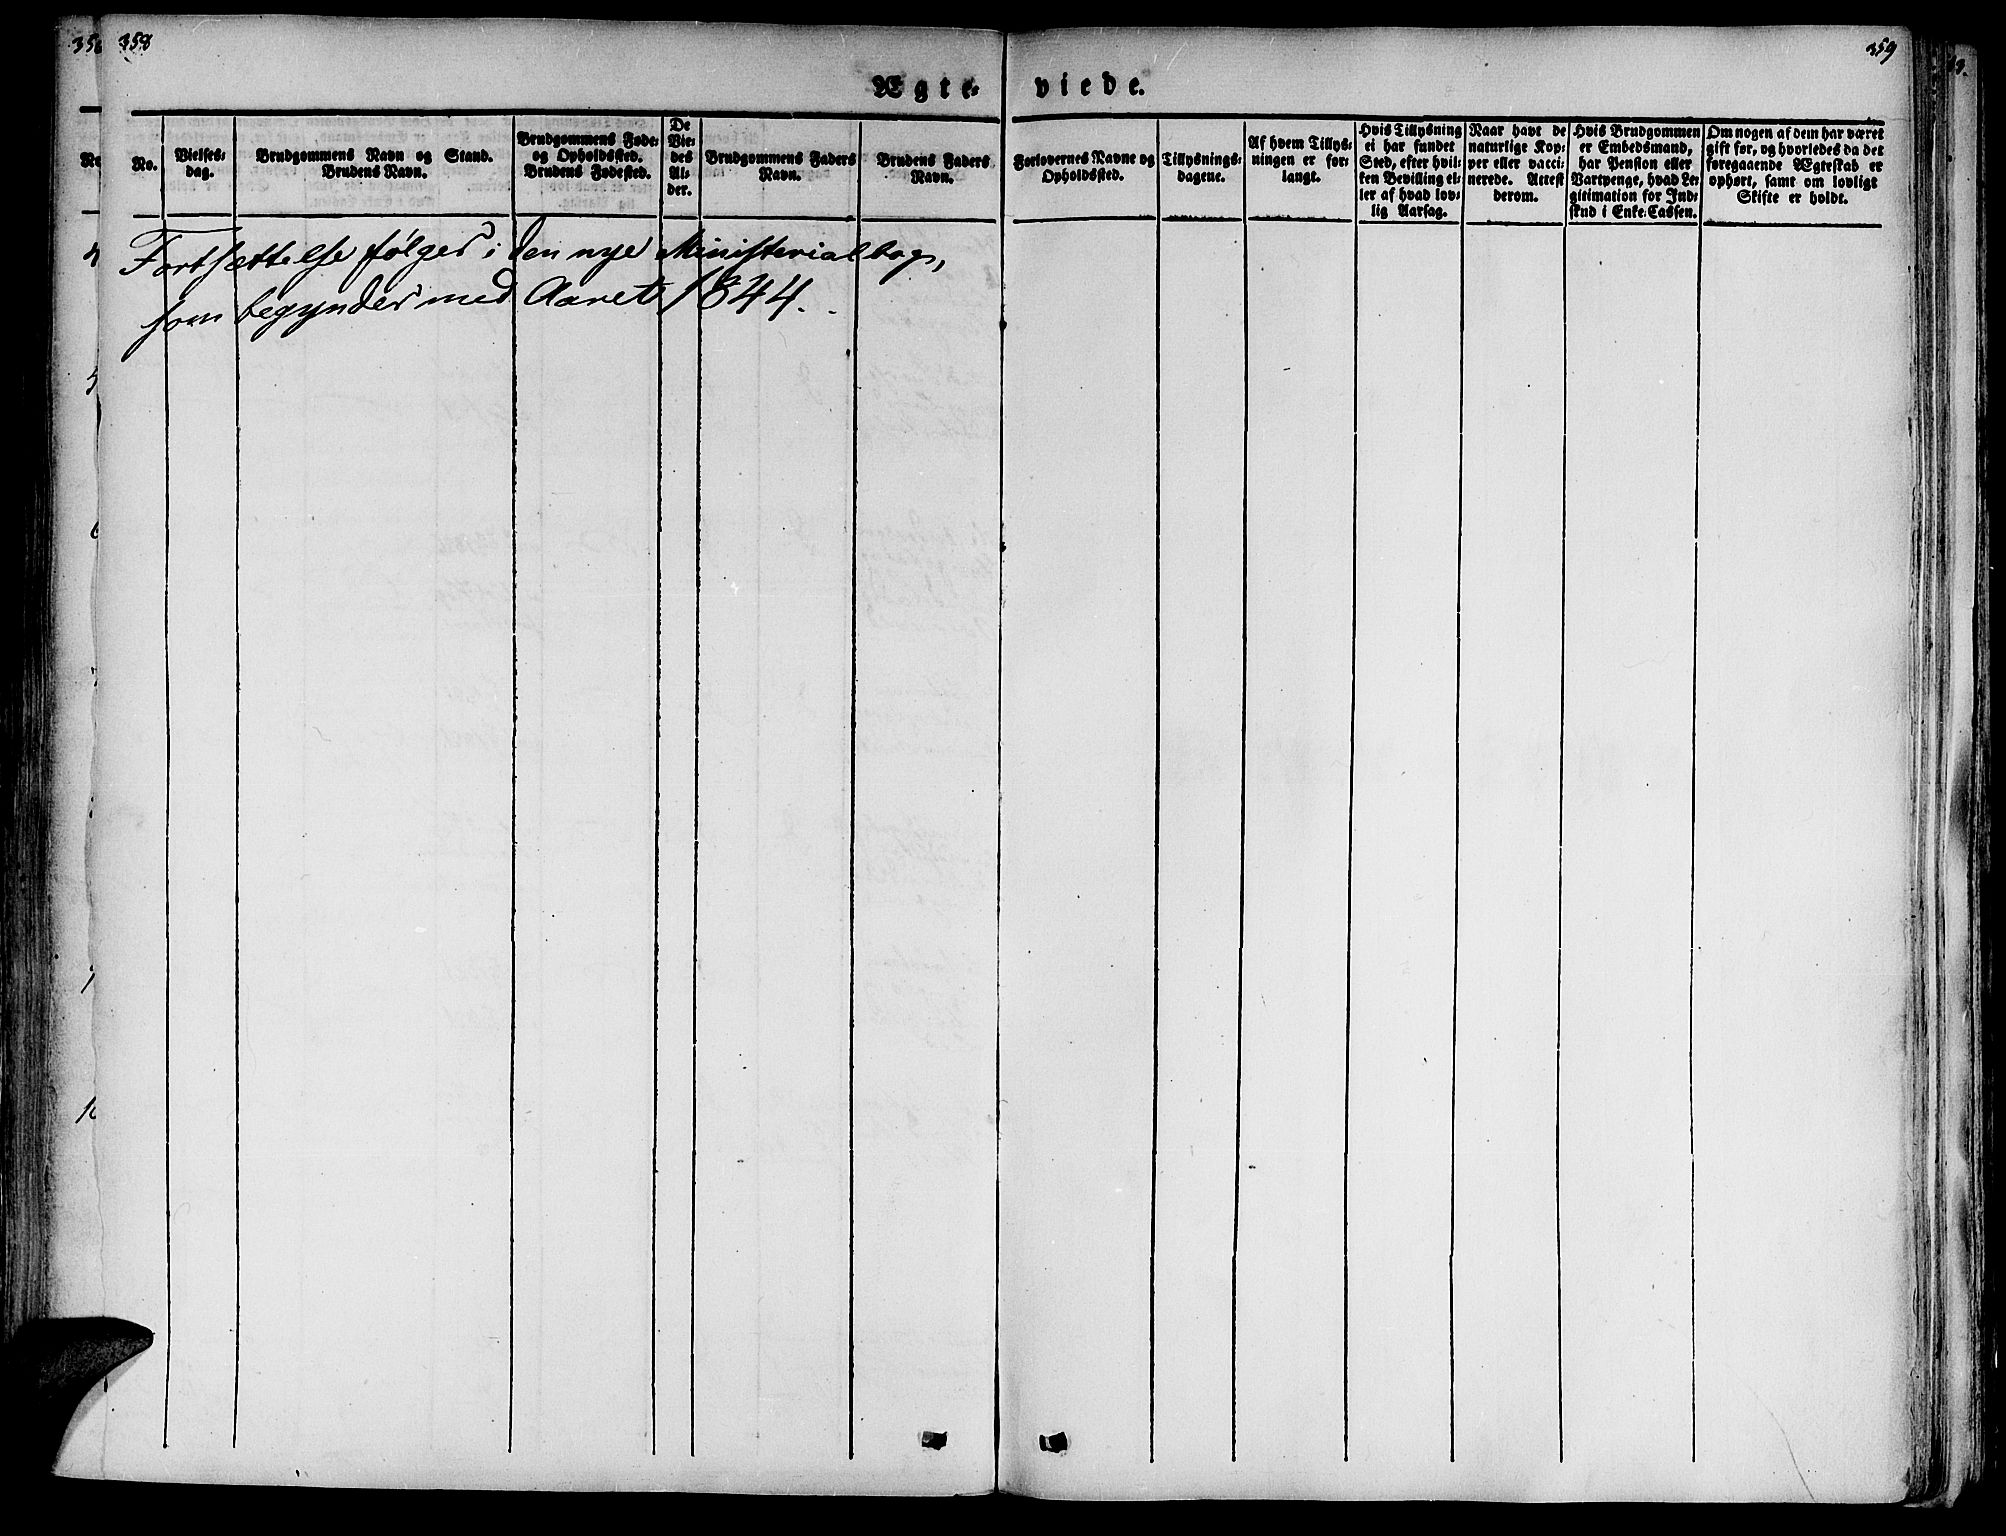 358
359
Ægte- viede.
No.
Vielses-
dag.
Brudgommens Navn og Stand.
Brudens Navn.
Brudgommens Føde-
og Opholdssted.
Brudens Fødested.
De
Vie-
des
Al-
der.
Brudgommens Faders
Navn.
Brudens Faders
Navn.
Forlovernes Navne og
Opholdssted.
Tillysnings-
dagene.
Af hvem Tillys-
ningen er for-
langt.
Hvis Tillysning
ei har fundet
Sted, efter hvil-
ken Bevilling el-
ler af hvad lov-
lig Aarsag.
Naar havt de
naturlige Kop-
per eller vacci-
nerede. Attest
derom.
Hvis Brudgommen
er Embedsmand,
har Pension eller
Vartpenge, hvad Le-
gitimation for Ind-
skud i Enke-Cassen.
Om nogen af dem har været
gift før, og hvorledes da det
foregaaende Ægteskab er
ophørt, samt om lovligt
Skifte er holdt.
Fortsættelse følger i den nye Ministerialbog,
som begynder med Aaret 1844.